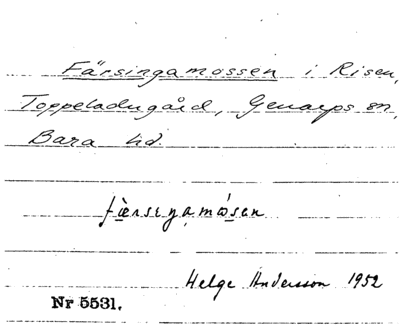 Färsingamossen i Risen,
Toppeladugård, Genarps sn,
Bara hd.
fæ̀rseŋamósan
Helge Andersson 1952
Nr 5531.